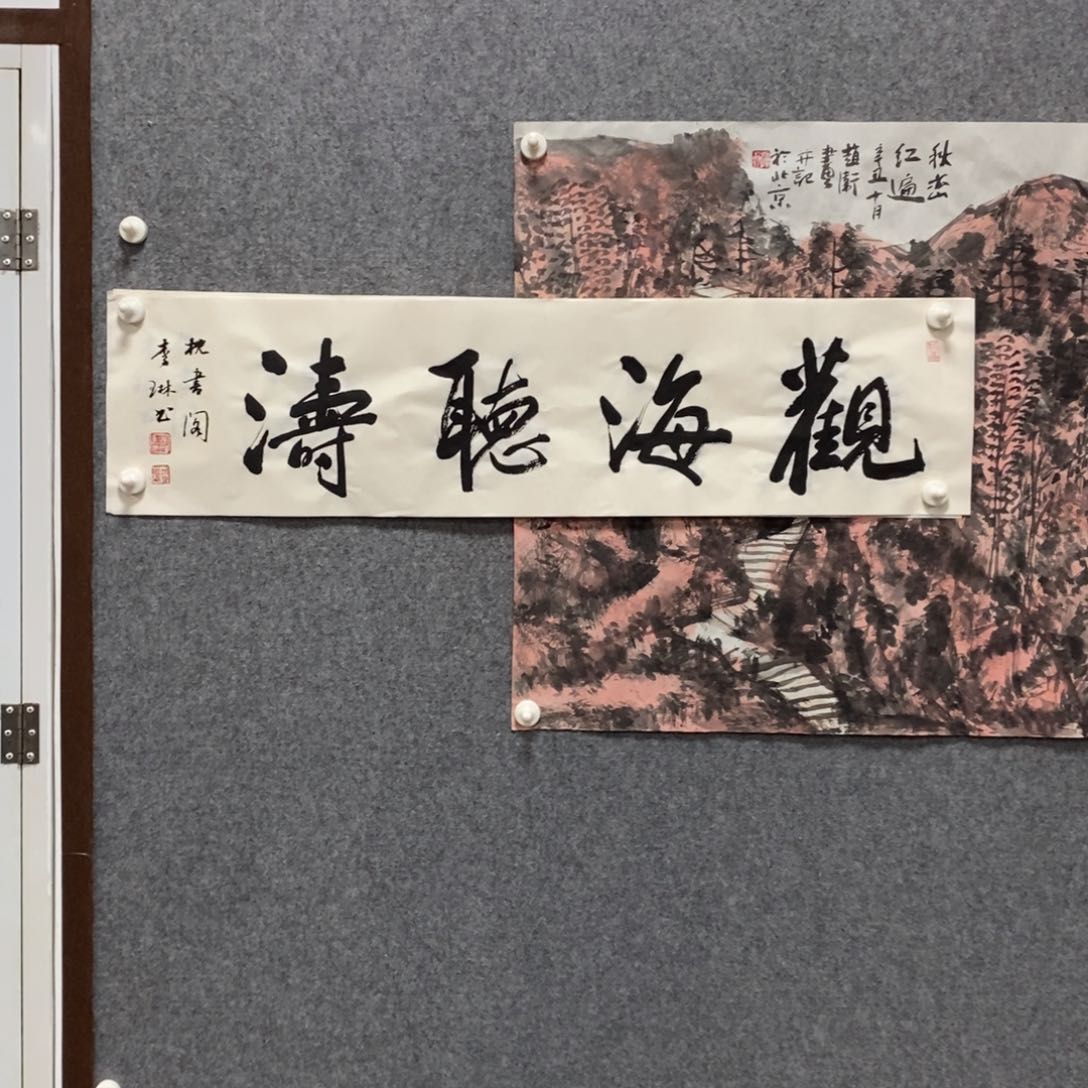 觀海聽濤
枕書閣
李琳书
秋崧
红遍
辛丑十月
趙新
畫
并記
於北京